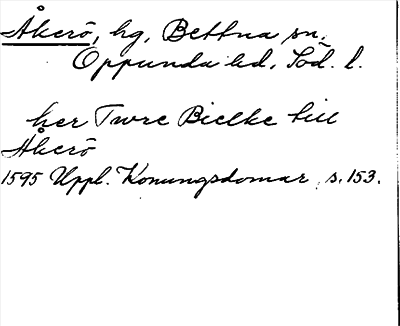 Åkerö, hg, Bettna sn.
Oppunda hd, Söd. l.
her Twre Bielke till
Åkerö
1595 Uppl. Konungsdomar, s. 153.